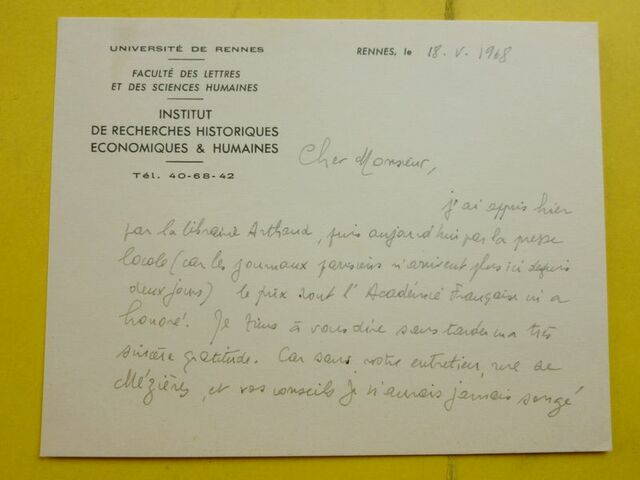 UNIVERSITÉ DE RENNES
FACULTÉ DES LETTRES
ET DES SCIENCES HUMAINES
INSTITUT
DE RECHERCHES HISTORIQUES
ECONOMIQUES & HUMAINES
Tél. 40-68-42
RENNES, le 18. V. 1968
Cher Monsieur,
j'ai appris hier
par la librairie Arthaud, puis aujourd'hui par la presse
locale (car les journaux parisiens n'arrivent plus ici depuis
deux jours) le prix dont l'Académie Française m'a
honoré. Je tiens à vous dire sans tarder ma très
sincère gratitude. Car sans votre entretien, rue de
Mézières, et vos conseils je n'aurais jamais songé